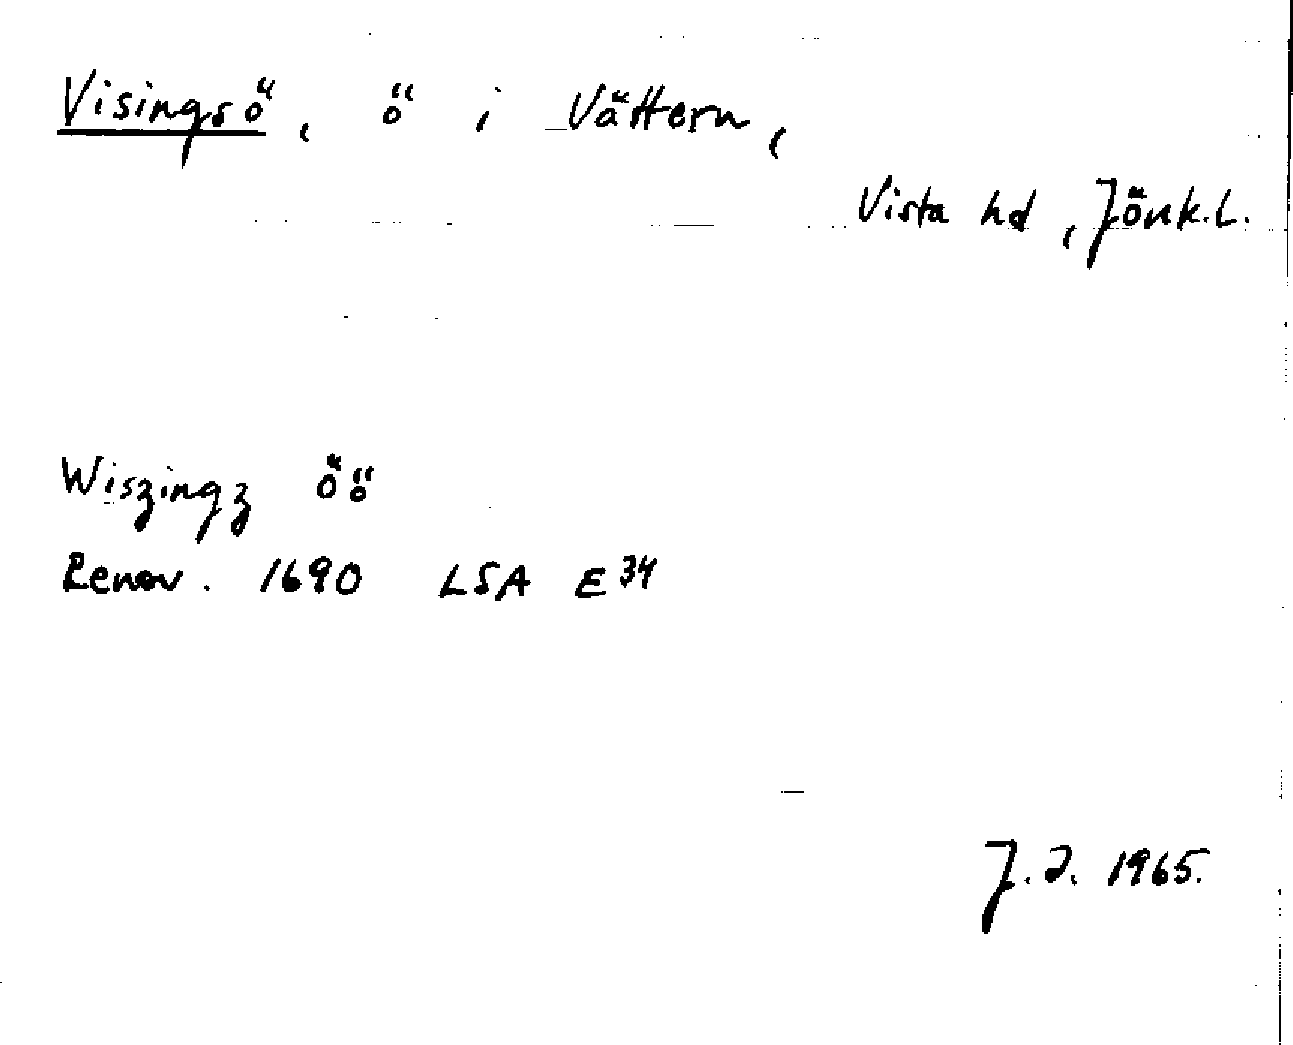 Visingsö, ö i Vättern,
Vista hd, Jönk.L.
Wiszingz öö
Renov. 1690 LSA E 34
J.J. 1965.